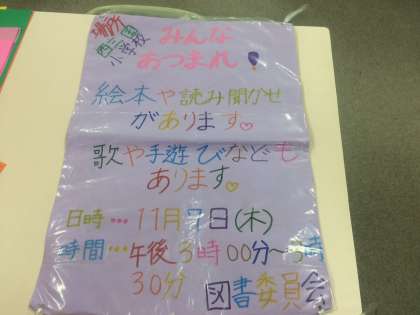 場所
西三田
小学校
みんな
あつまれ!
絵本や読み聞かせ
があります。
歌や手遊びなども
あります。
日時…11月9日(木)
時間…午後3時00分〜3時
30分 図書委員会